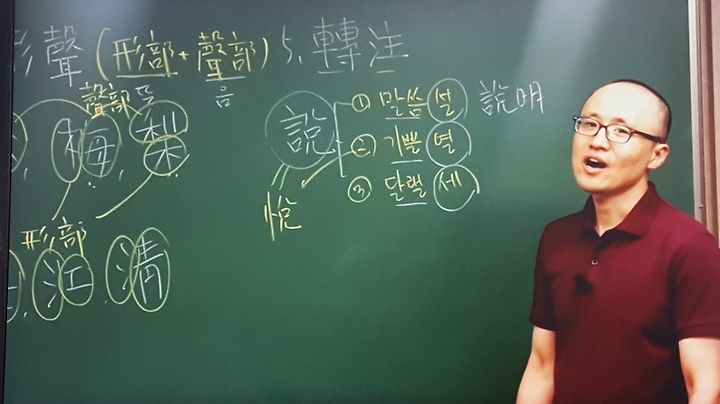 形聲 (形部+聲部) 5. 轉注
聲部 뜻 음
梅, 梨
形部
江, 淸
說
① 말씀 설 說明
② 기쁠 열
③ 달랠 세
悅